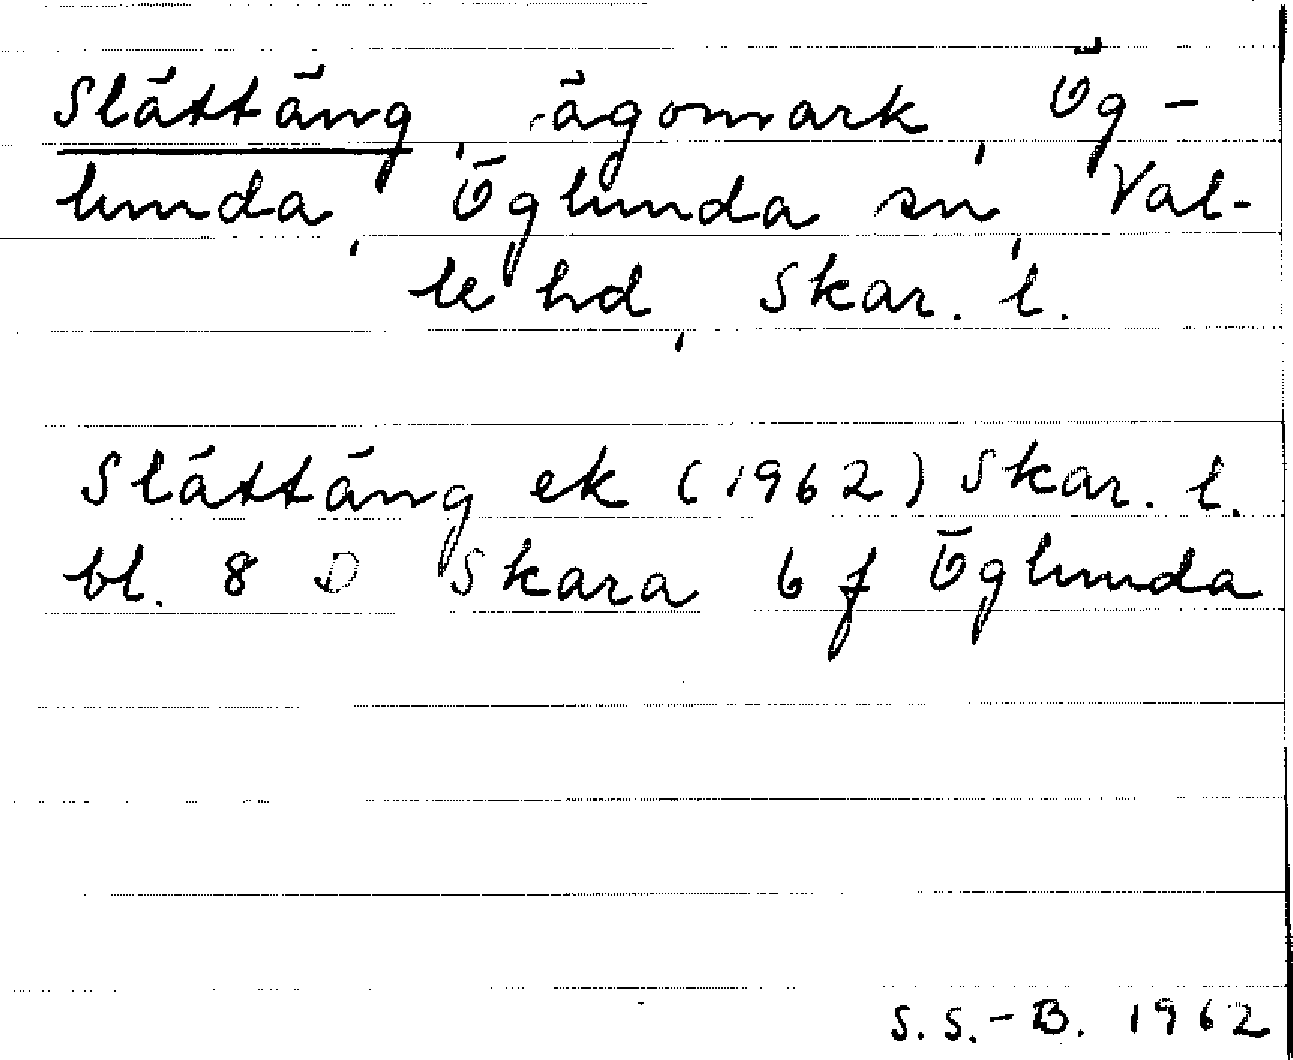 Slättäng, ägomark, Ög-
lunda, Öglunda sn, Val-
le hd, Skar. l.
Slättäng ek (1962) Skar. l.
bl. 8 D Skara 6 f Öglunda
S.S.-B. 1962